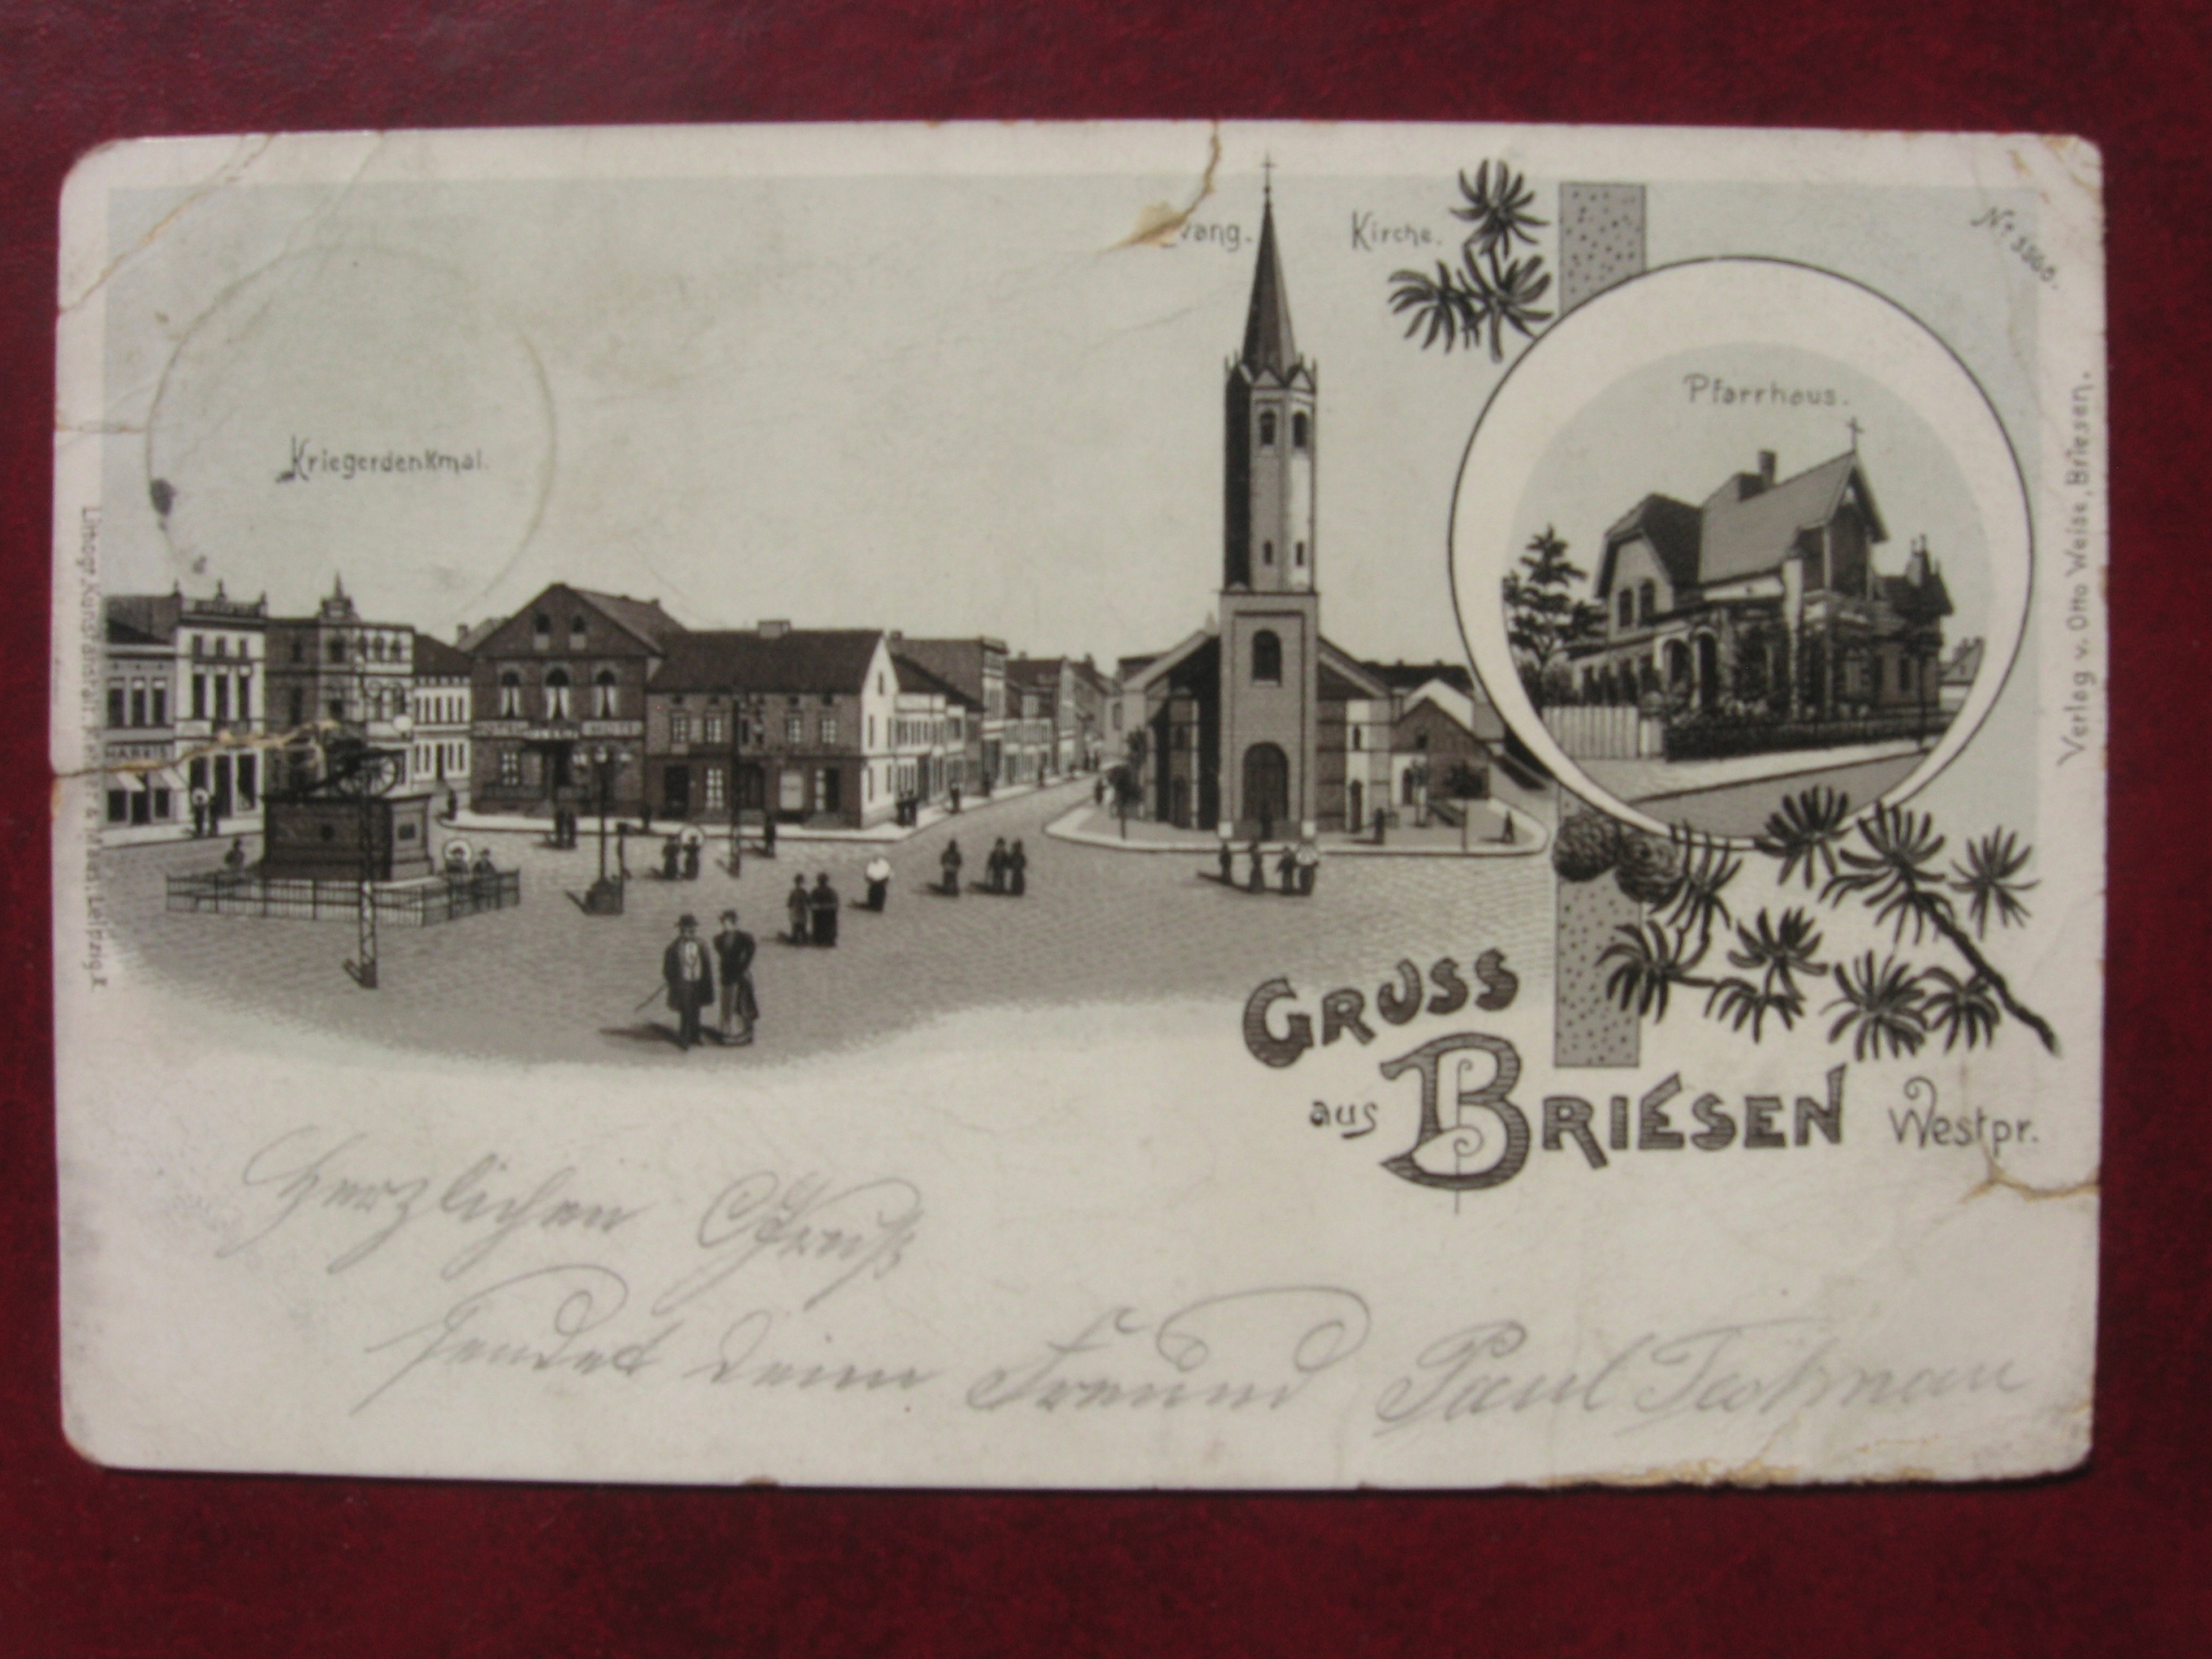 Evang. Kirche.
Nr. 3360.
Pfarrhaus.
Kriegerdenkmal.
Verlag v. Otto Weise, Briesen.
Lithogr. Kunstanstalt, & Leipzig.
GRUSS
aus BRIESEN Westpr.
Herzlichen Gruß
sendet dein Freund Paul